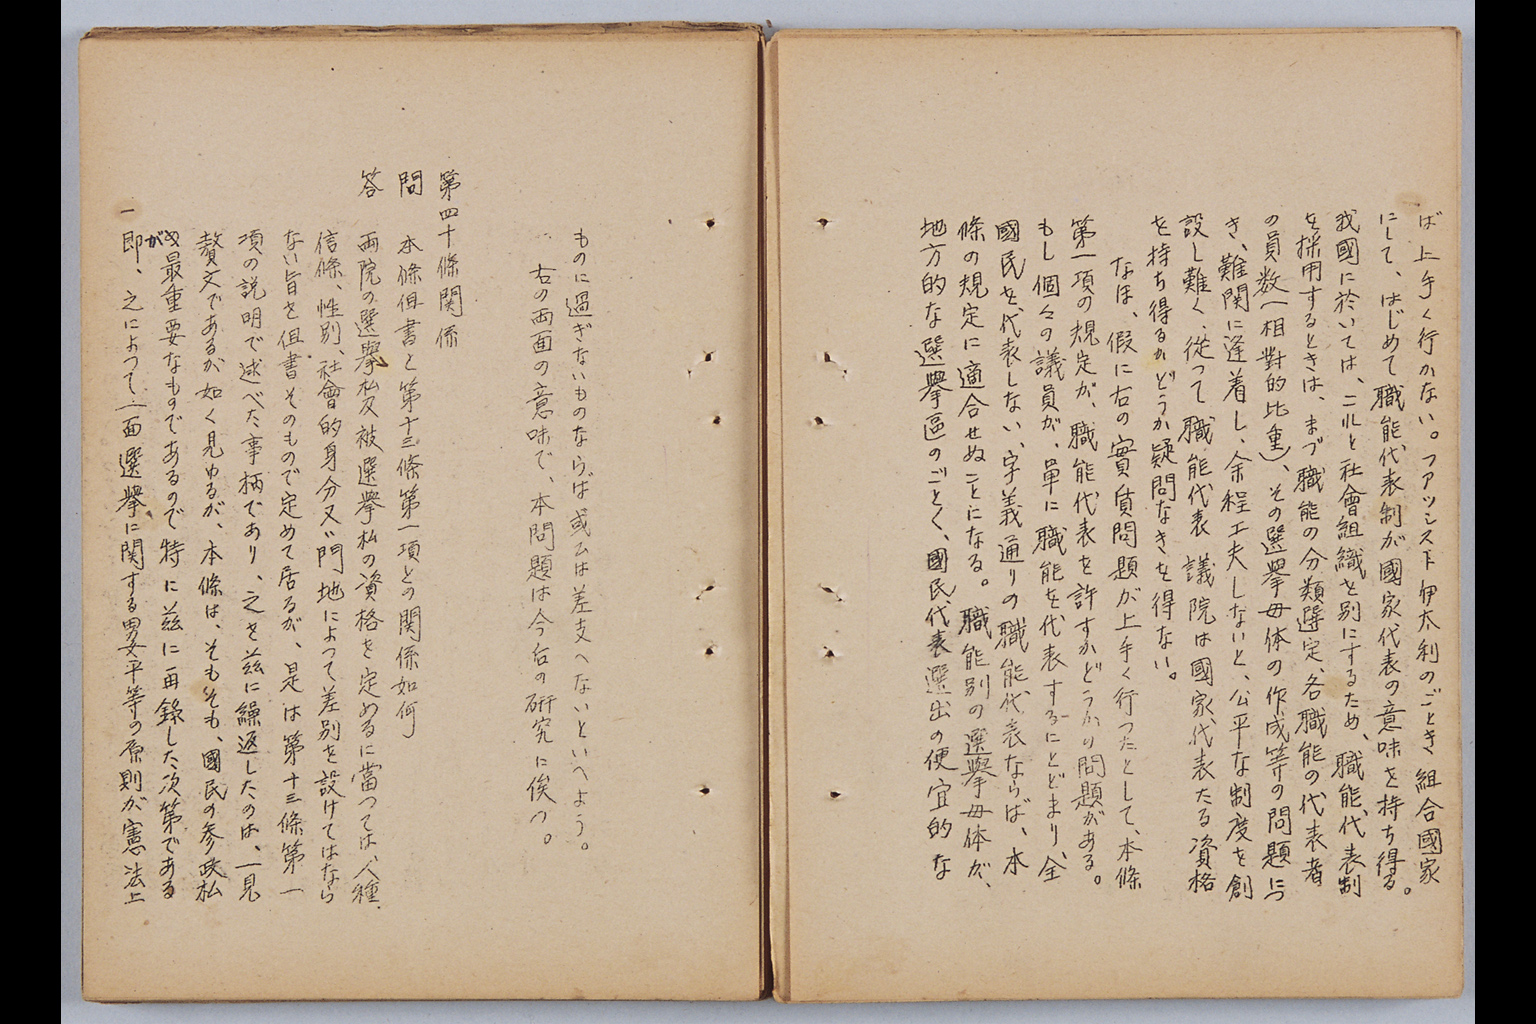 ば上手く行かない。フアツシスト伊太利のごとき組合國家
にして、はじめて職能代表制が國家代表の意味を持ち得る。
我國に於いては、これと社會組織を別にするため、職能代表制
を採用するときは、まづ職能の分類選定、各職能の代表者
の員数(相對的比重)、その選挙母体の作成等の問題につ
き、難関に逢着し、余程工夫しないと、公平な制度を創
設し難く、従つて職能代表議院は國家代表たる資格
を持ち得るかどうか疑問なきを得ない。
なほ、假に右の實質問題が上手く行つたとして、本條
第一項の規定が、職能代表を許すかどうかの問題がある。
もし個々の議員が、単に職能を代表するにとどまり、全
國民を代表しない、字義通りの職能代表ならば、本
條の規定に適合せぬことになる。職能別の選挙母体が、
地方的な選挙區のごとく、國民代表選出の便宜的な
ものに過ぎないものならば或ひは差支へないといへよう。
右の両面の意味で、本問題は今后の研究に俟つ。
第四十條関係
問 本條但書と第十三條第一項との関係如何
答 両院の選挙权及被選挙权の資格を定めるに當つては、人種、
信條、性別、社會的身分又は門地によつて差別を設けてはなら
ない旨を但書そのもので定めて居るが、是は第十三條第一
項の説明で述べた事柄であり、之を茲に繰返したのは、一見
贅文であるが如く見ゆるが、本條は、そもそも、國民の参政权
が最重要なものであるので特に茲に再錄した次第である
一 即、之によつて一面選挙に関する男女平等の原則が憲法上